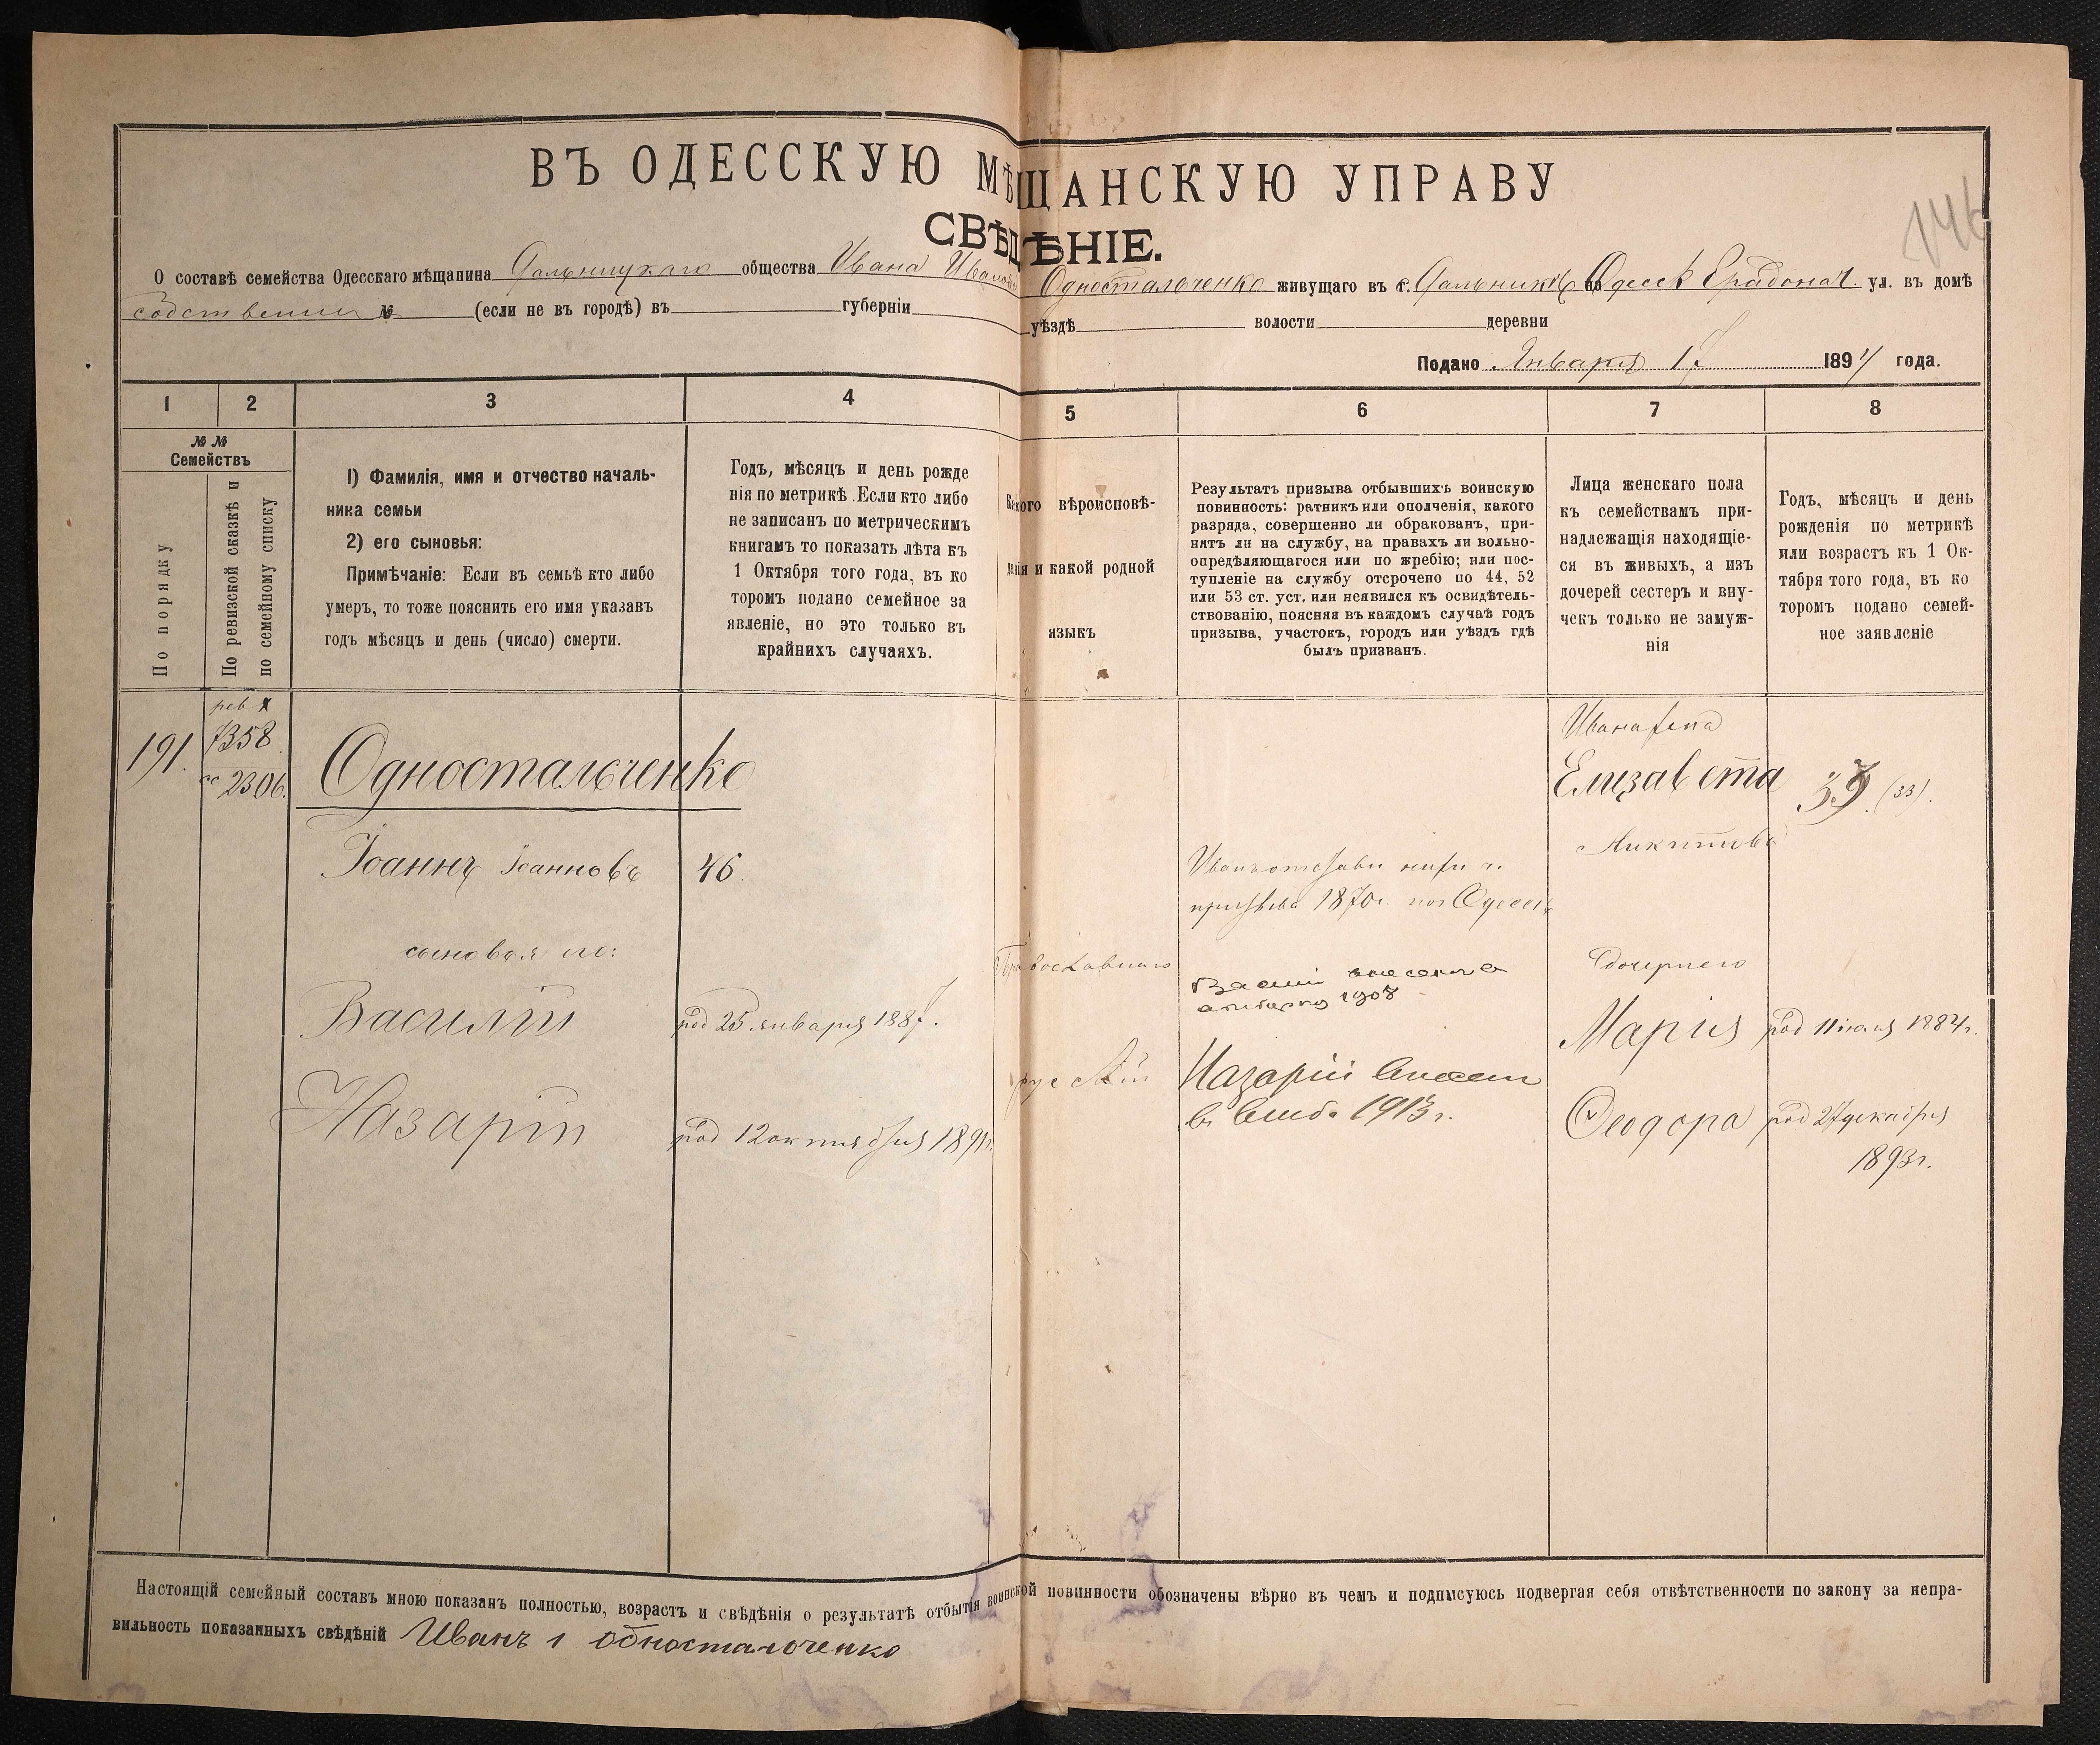 146
ВЪ ОДЕССКУЮ МѢЩАНСКУЮ УПРАВУ
СВѢДѢНІЕ.
О составѣ семейства Одесскаго мѣщанина Дальницкаго общества Ивана Иванова Одностальченко живущаго въ г. Дальникѣ на ул. въ домѣ
собственны № (если не въ городѣ) въ губерніи уѣздѣ волости деревни
Подано Января 17 1894 года.
1 2 3 4 5 6 7 8
№ №
Семействъ
По порядку
По ревизской сказкѣ и
по семейному списку
1) Фамилія, имя и отчество началь-
ника семьи
2) его сыновья:
Примѣчаніе: Если въ семьѣ кто либо
умеръ, то тоже пояснить его имя указавъ
годъ мѣсяцъ и день (число) смерти.
Годъ, мѣсяцъ и день рожде
нія по метрикѣ. Если кто либо
не записанъ по метрическимъ
книгамъ то показать лѣта къ
1 Октября того года, въ ко
торомъ подано семейное за
явленіе, но это только въ
крайнихъ случаяхъ.
Какого вѣроисповѣ-
данія и какой родной
языкъ
Результатъ призыва отбывшихъ воинскую
повинность: ратникъ или ополченія, какого
разряда, совершенно ли обракованъ, при-
нятъ ли на службу, на правахъ ли вольно-
опредѣляющагося или по жребію; или пос-
тупленіе на службу отсрочено по 44, 52
или 53 ст. уст. или неявился къ освидѣтель-
ствованію, поясняя въ каждомъ случаѣ годъ
призыва, участокъ, городъ или уѣздъ гдѣ
былъ призванъ.
Лица женскаго пола
къ семействамъ при-
надлежащія находящіе-
ся въ живыхъ, а изъ
дочерей сестеръ и вну-
чекъ только не замуж-
нія
Годъ, мѣсяцъ и день
рожденія по метрикѣ
или возрастъ къ 1 Ок-
тября того года, въ ко
торомъ подано семей-
ное заявленіе
191.
рев
7358
сс 2306.
Одностальченко
Іоаннъ Іоанновъ 46.
сыновья его:
Василій род 25 января 1887.
Назарій род 12 октября 1891г.
Православнаго
русскій
призыва 1870г. по Одессѣ
Василій внесенъ в
1908
Назарій внесен
в 1913г.
Ивана жена
Елизавета 39 (33).
Никитова
Марія род 11 іюля 1884г.
Ѳеодора род 27 декабря
1893г.
Настоящій семейный составъ мною показанъ полностью, возрастъ и свѣдѣнія о результатѣ отбытія воинской повинности обозначены вѣрно въ чемъ и подписуюсь подвергая себя отвѣтственности по закону за непра-
вильность показанныхъ свѣдѣній Иванъ Одностальченко